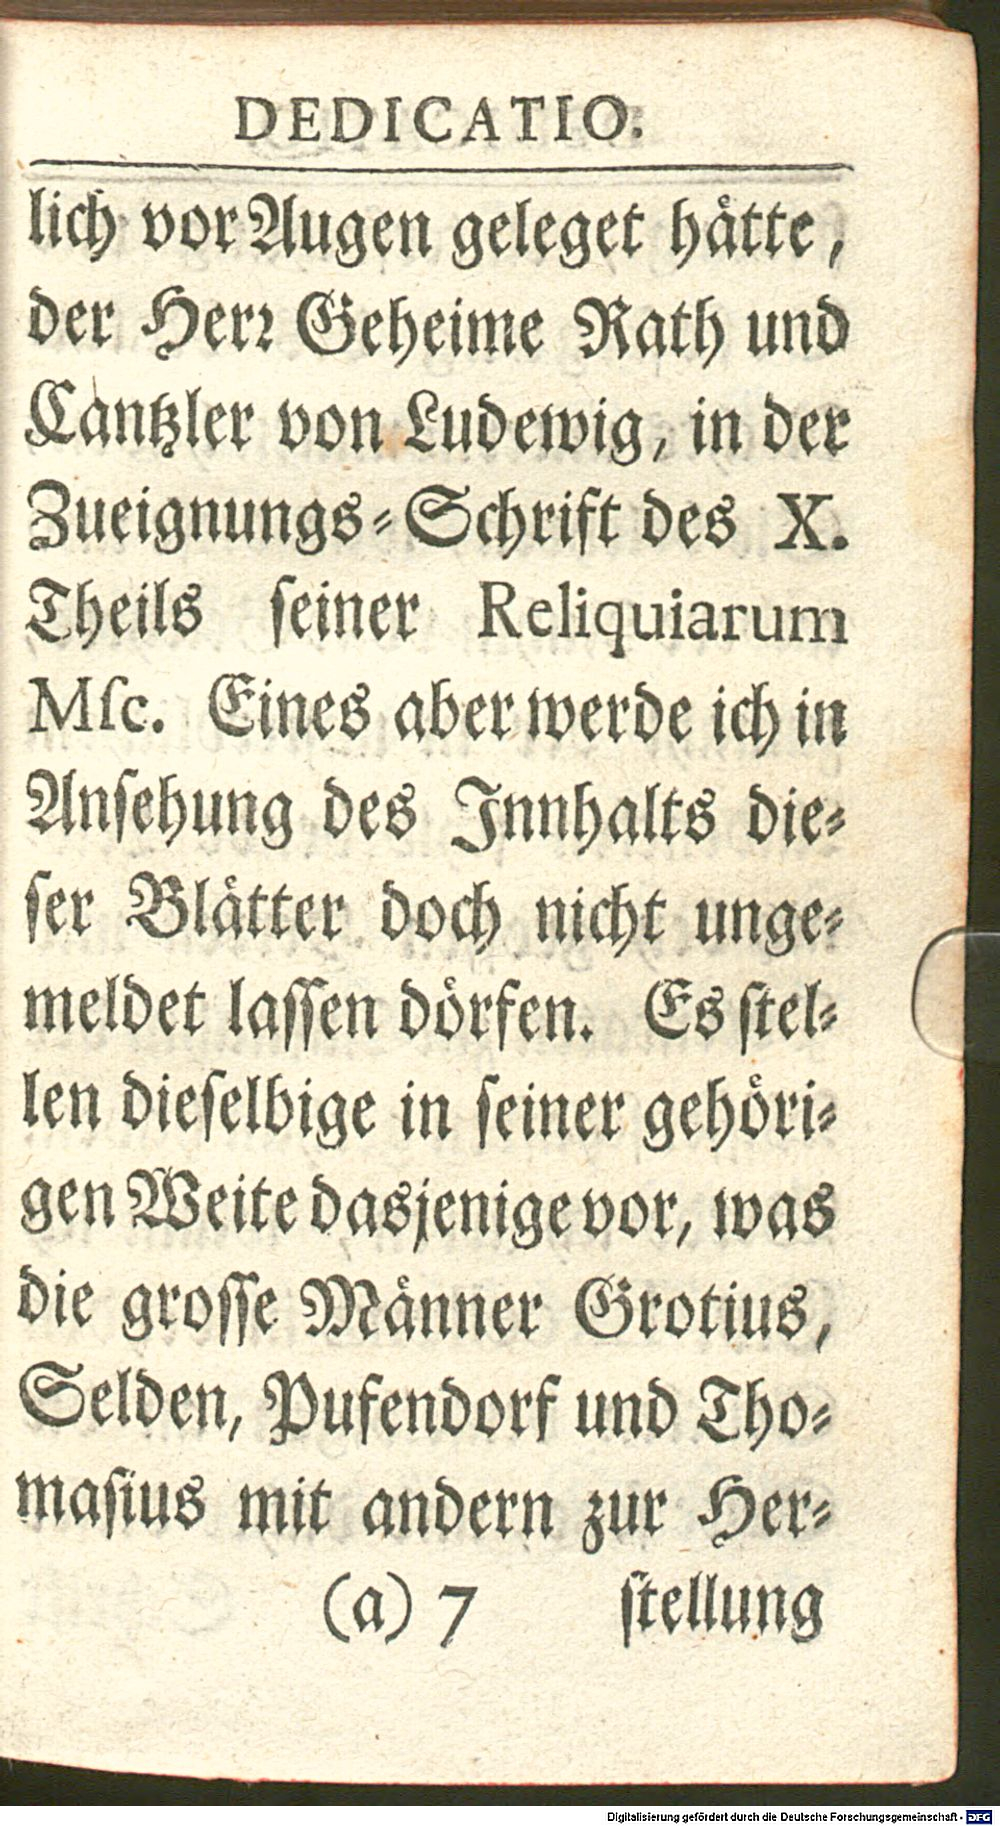 DEDICATIO.
lich vor Augen geleget hätte,
der Herꝛ Geheime Rath und
Cantzler von Ludewig, in der
Zueignungs-Schrift des X.
Theils ſeiner Reliquiarum
Mſc. Eines aber werde ich in
Anſehung des Innhalts die-
ſer Blätter doch nicht unge-
meldet laſſen dörfen. Es ſtel-
len dieſelbige in ſeiner gehöri-
gen Weite dasjenige vor, was
die groſſe Männer Grotius,
Selden, Pufendorf und Tho-
maſius mit andern zur Her-
(a) 7 ſtellung
Digitalisierung gefördert durch die Deutsche Forschungsgemeinschaft - DFG